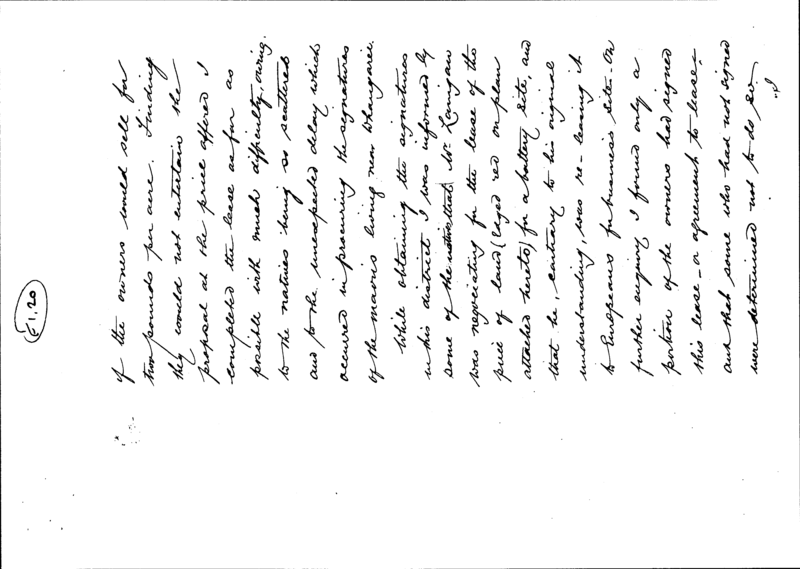 E 1.20
of the owners would sell for
two pounds per acre. Finding
they would not entertain the
proposal at the price offered I
completed the lease as far as
possible with much difficulty, owing
to the natives being so scattered
and to the unexpected delay which
occurred in procuring the signatures
of the maoris living near Whangarei.
While obtaining the signatures
in his district I was informed by
some of the natives that Mr. Lanigan
was negociating for the lease of the
piece of land (Edged red on plan
attached hereto) for a battery site, and
that he, contrary to his original
understanding, was re-leasing it
to Europeans for business site. On
further enquiry I found only a
portion of the owners had signed
this lease - or agreement to lease -
and that some who had not signed
were determined not to do so.